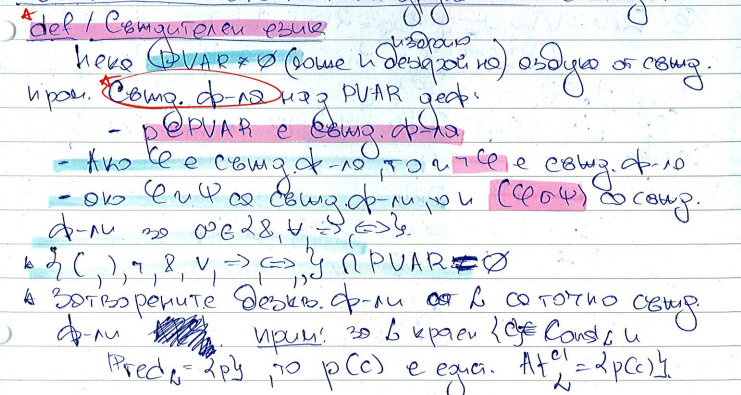 def / Съждителен език
Нека PVAR ≠ ∅ (може и безкрайно) азбука от съжд.
пром. Съжд. ф-ла над PVAR деф:
- p∈PVAR е съжд. ф-ла
- Ако φ е съжд. ф-ла, то и ¬φ е съжд. ф-ла
- ако φ и ψ са съжд. ф-ли, то и (φσψ) са съжд.
ф-ли за σ∈{&, ∨, ⇒, ⇔}.
{ (, ), ¬, &, ∨, ⇒, ⇔ } ∩ PVAR = ∅
Затворените безкв. ф-ли от L са точно съжд.
ф-ли прим: за L краен {c} Const_L и
Pred_L = {p}, то p(c) е един. At_L^cl = {p(c)}.